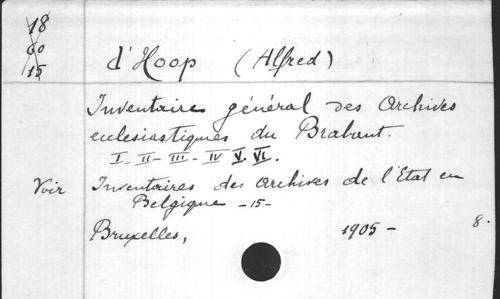 18
60
15
d'Hoop (Alfred)
Inventaire général des Archives
ecclesiastiques du Brabant.
I - II - III - IV V. VI.
Voir Inventaires des archives de l'Etat en
Belgique - 15 -
Bruxelles, 1905 - 8.